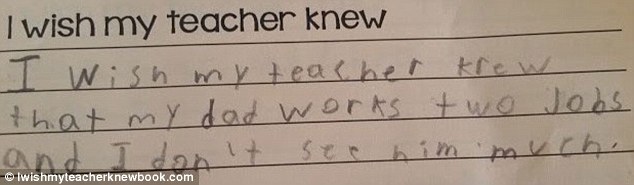 I wish my teacher knew
I wish my teacher krew
that my dad works two Jobs
and I don't see him much.
© Iwishmyteacherknewbook.com